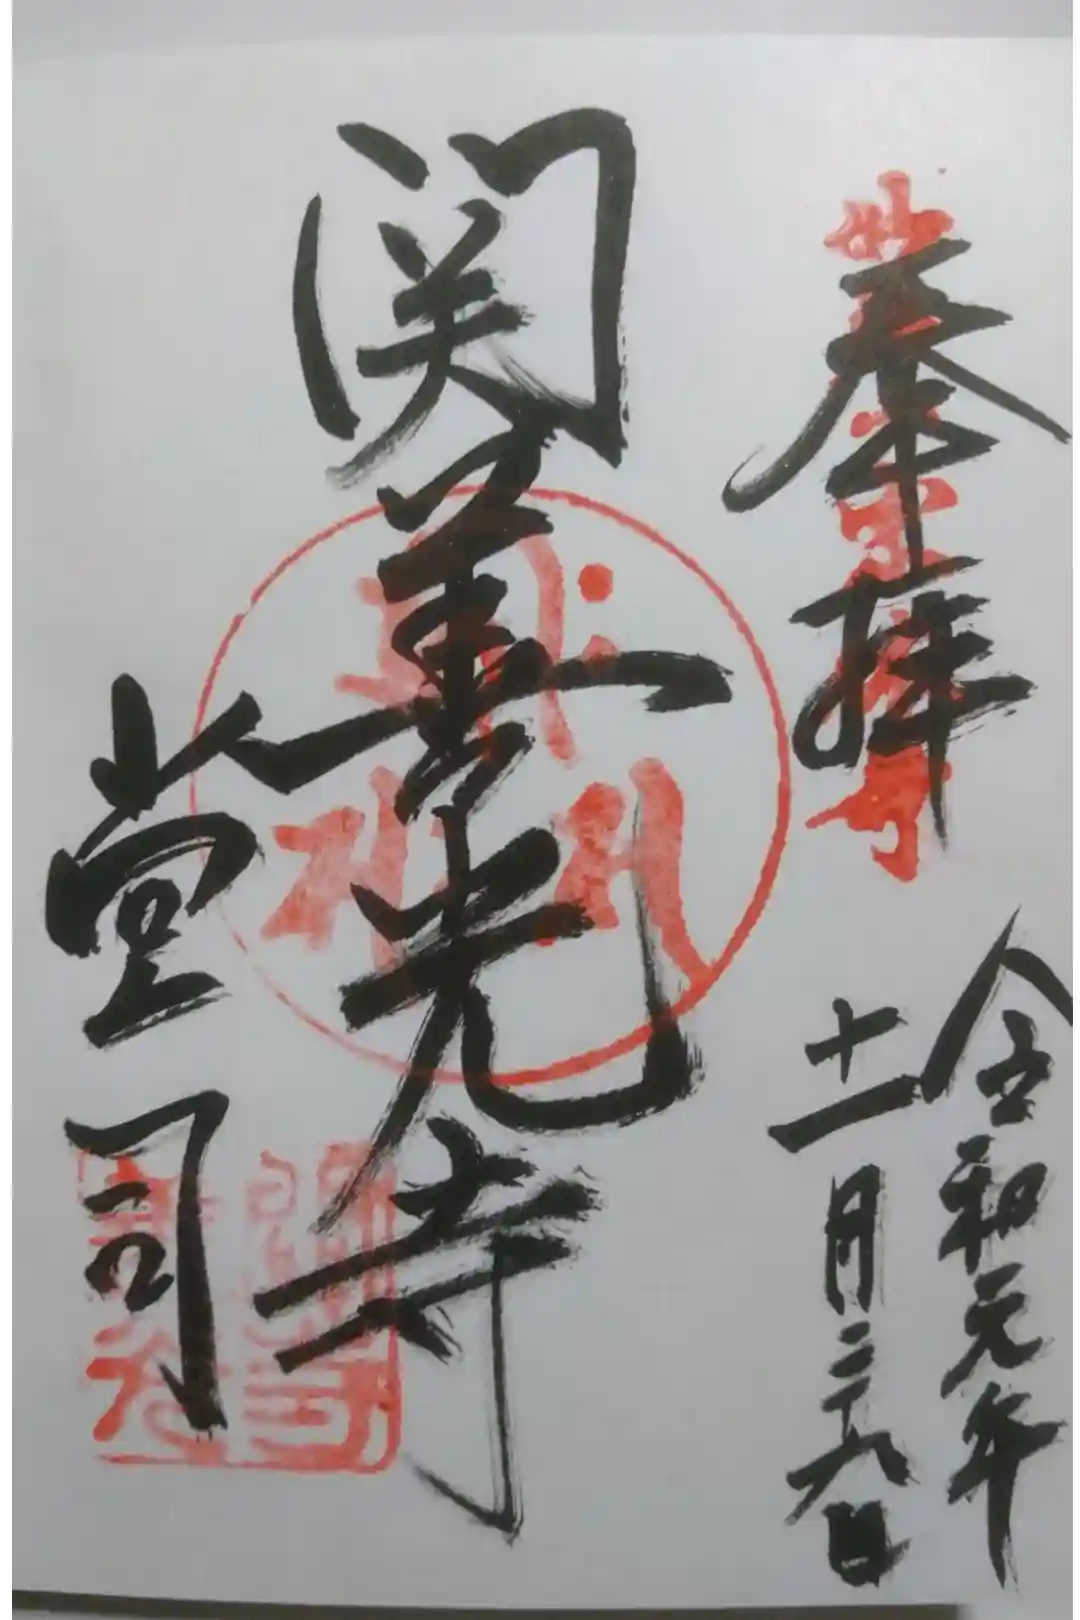 奉拝
令和元年
十一月二十九日
関善光寺
堂司